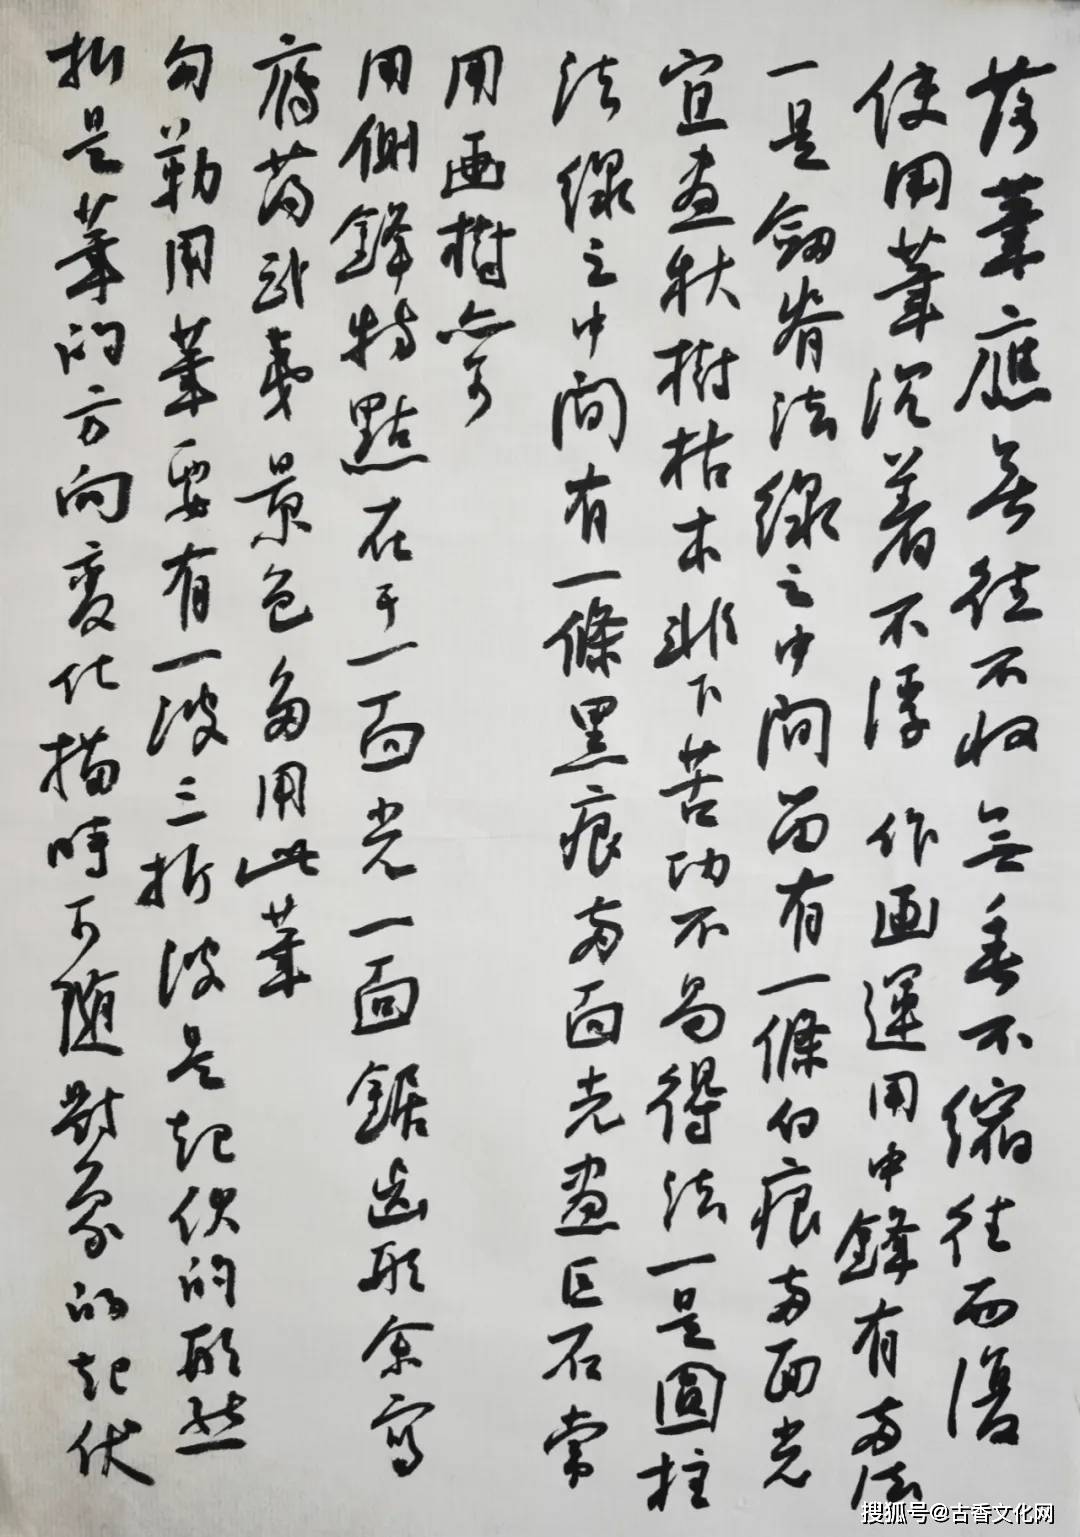 落筆應無往不收無垂不縮往而復
使用筆沉着不浮 作画運用中鋒有两法
一是劍脊法線之中間留有一條白痕两面光
宜畫秋樹枯木非下苦功不易得法一是圓柱
法線之中間有一條黑痕两面光畫巨石常
用画樹亦可
用側鋒特點在于一面光一面鋸齒形余寫
雁蕩武夷景色多用此筆
勾勒用筆要有一波三折波是起伏的形態
折是筆的方向变化描時可随對象的起伏
搜狐号@古香文化网